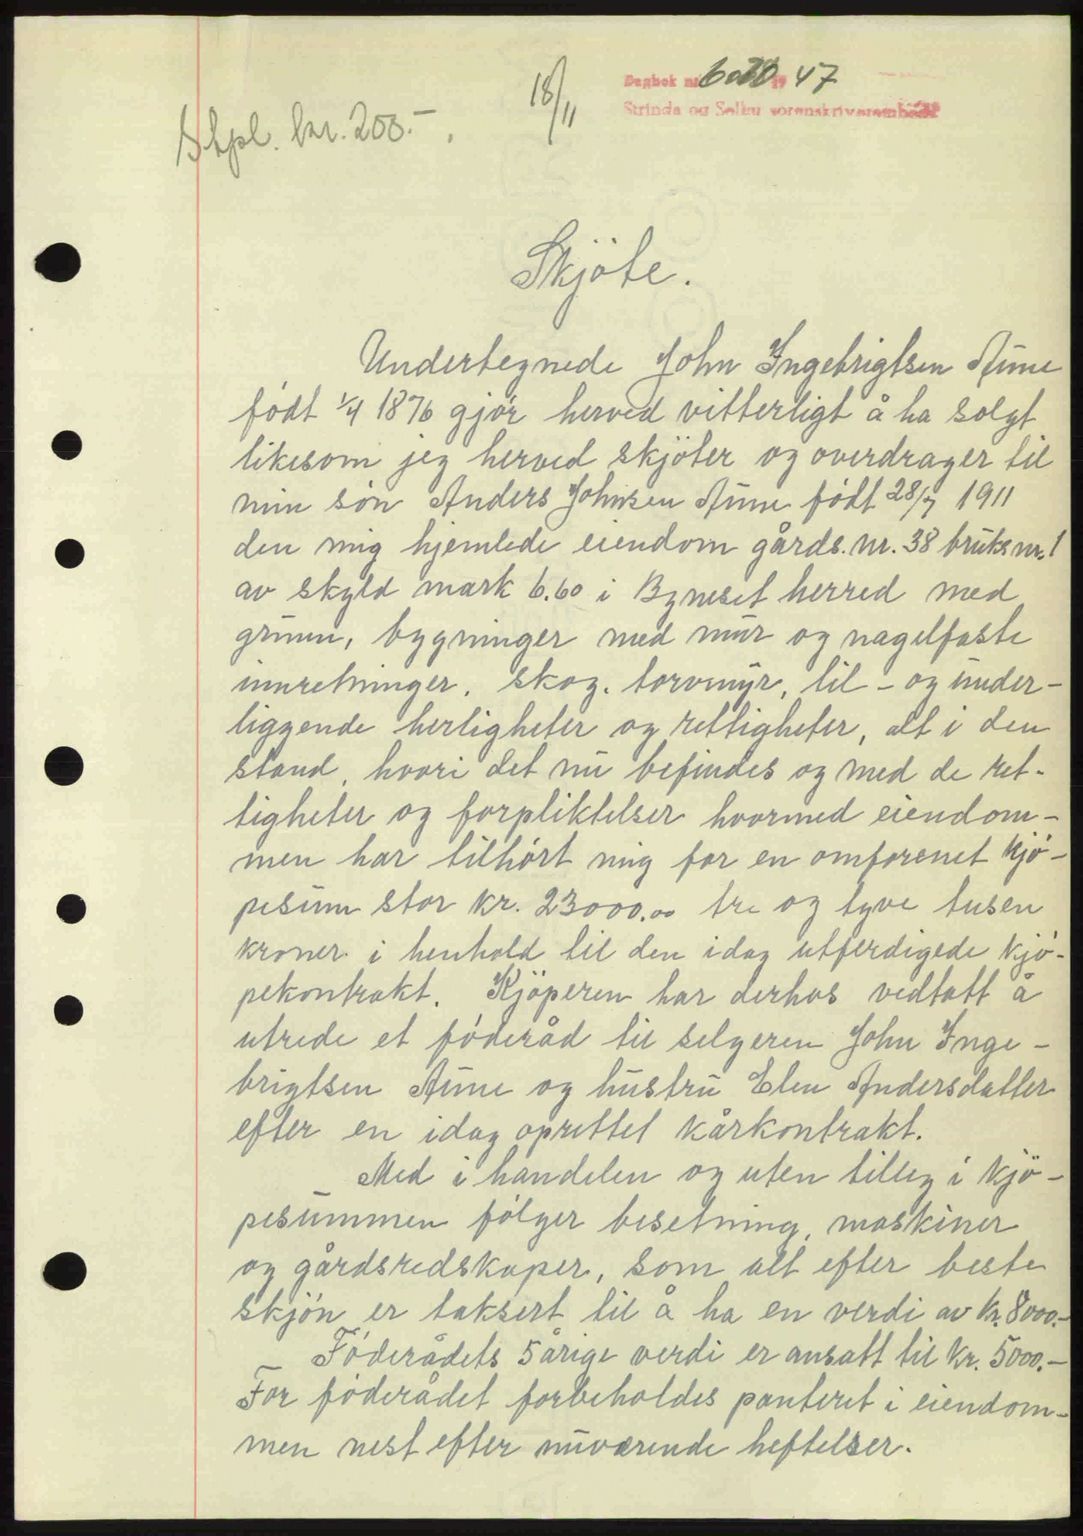 18/11
Dagbok nr. 19 47
Strinda og Selbu sorenskriverembede
Stpl. kr. 200.-.
Skjöte.
Undertegnede John Ingebrigtsen Aune
født 1/4 1876 gjør herved vitterligt å ha solgt
likesom jeg herved skjöter og overdrager til
min søn Anders Johnsen Aune født 28/7 1911
den mig hjemlede eiendom gårds.nr. 38 bruksnr. 1
av skyld mark 6.60 i Byneset herred med
grunn, bygninger med mur og nagelfaste
innretninger, skog, torvmyr, til- og under-
liggende herligheter og rettigheter, alt i den
stand, hvori det nu befindes og med de ret-
tigheter og forpliktelser hvormed eiendom-
men har tilhört mig for en omforenet kjö-
pesum stor kr. 23000,00 tre og tyve tusen
kroner i henhold til den idag utferdigede kjö-
pekontrakt. Kjöperen har derhos vedtatt å
utrede et föderåd til selgeren John Inge-
brigtsen Aune og hustru Elen Andersdatter
efter en idag oprettet kårkontrakt.
Med i handelen og uten tilleg i kjö-
pesummen fölger besetning, maskiner
og gårdsredskaper, som alt efter beste
skjön er taksert til å ha en verdi av kr. 8000.-
Föderådets 5 årige verdi er ansatt til kr. 5000.-
For föderådet forbeholdes panteret i eiendom-
men nest efter nuværende heftelser.